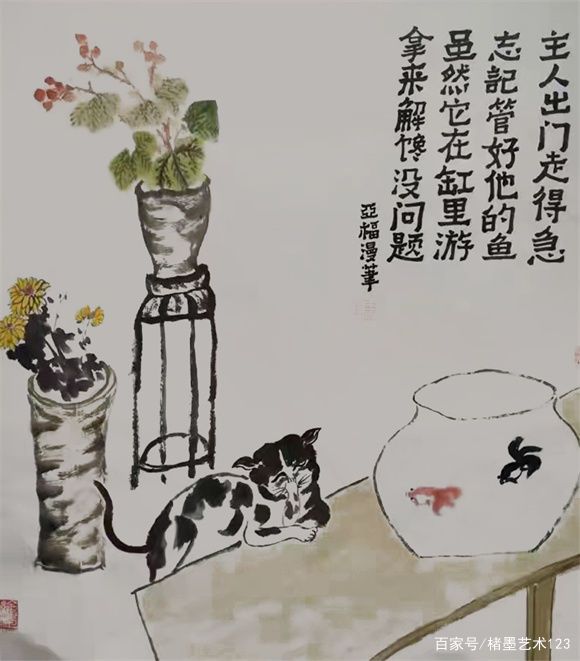 主人出门走得急
志記管好他的鱼
虽然它在缸里游
拿来解馋没问题
亞福漫筆
百家号/楮墨艺术123